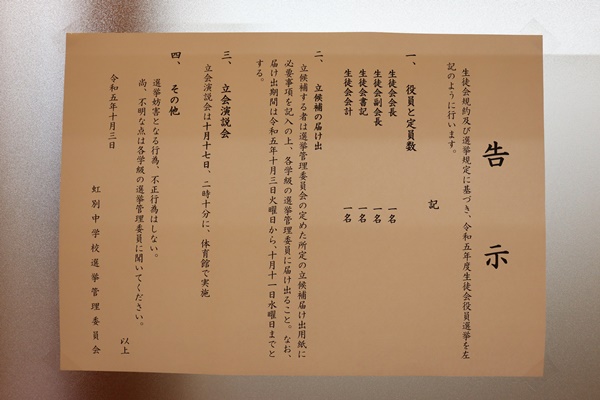 告示
生徒会規約及び選挙規定に基づき、令和五年度生徒会役員選挙を左
記のように行います。
記
一、役員と定員数
生徒会会長 一名
生徒会副会長 一名
生徒会書記 一名
生徒会会計 一名
二、立候補の届け出
立候補する者は選挙管理委員会の定めた所定の立候補届け出用紙に
必要事項を記入の上、各学級の選挙管理委員に届け出ること。なお、
届け出期間は令和五年十月三日火曜日から、十月十一日水曜日までと
する。
三、立会演説会
立会演説会は十月十七日、二時十分に、体育館で実施
四、その他
選挙妨害となる行為、不正行為はしない。
尚、不明な点は各学級の選挙管理委員に聞いてください。
以上
令和五年十月三日
虹別中学校選挙管理委員会